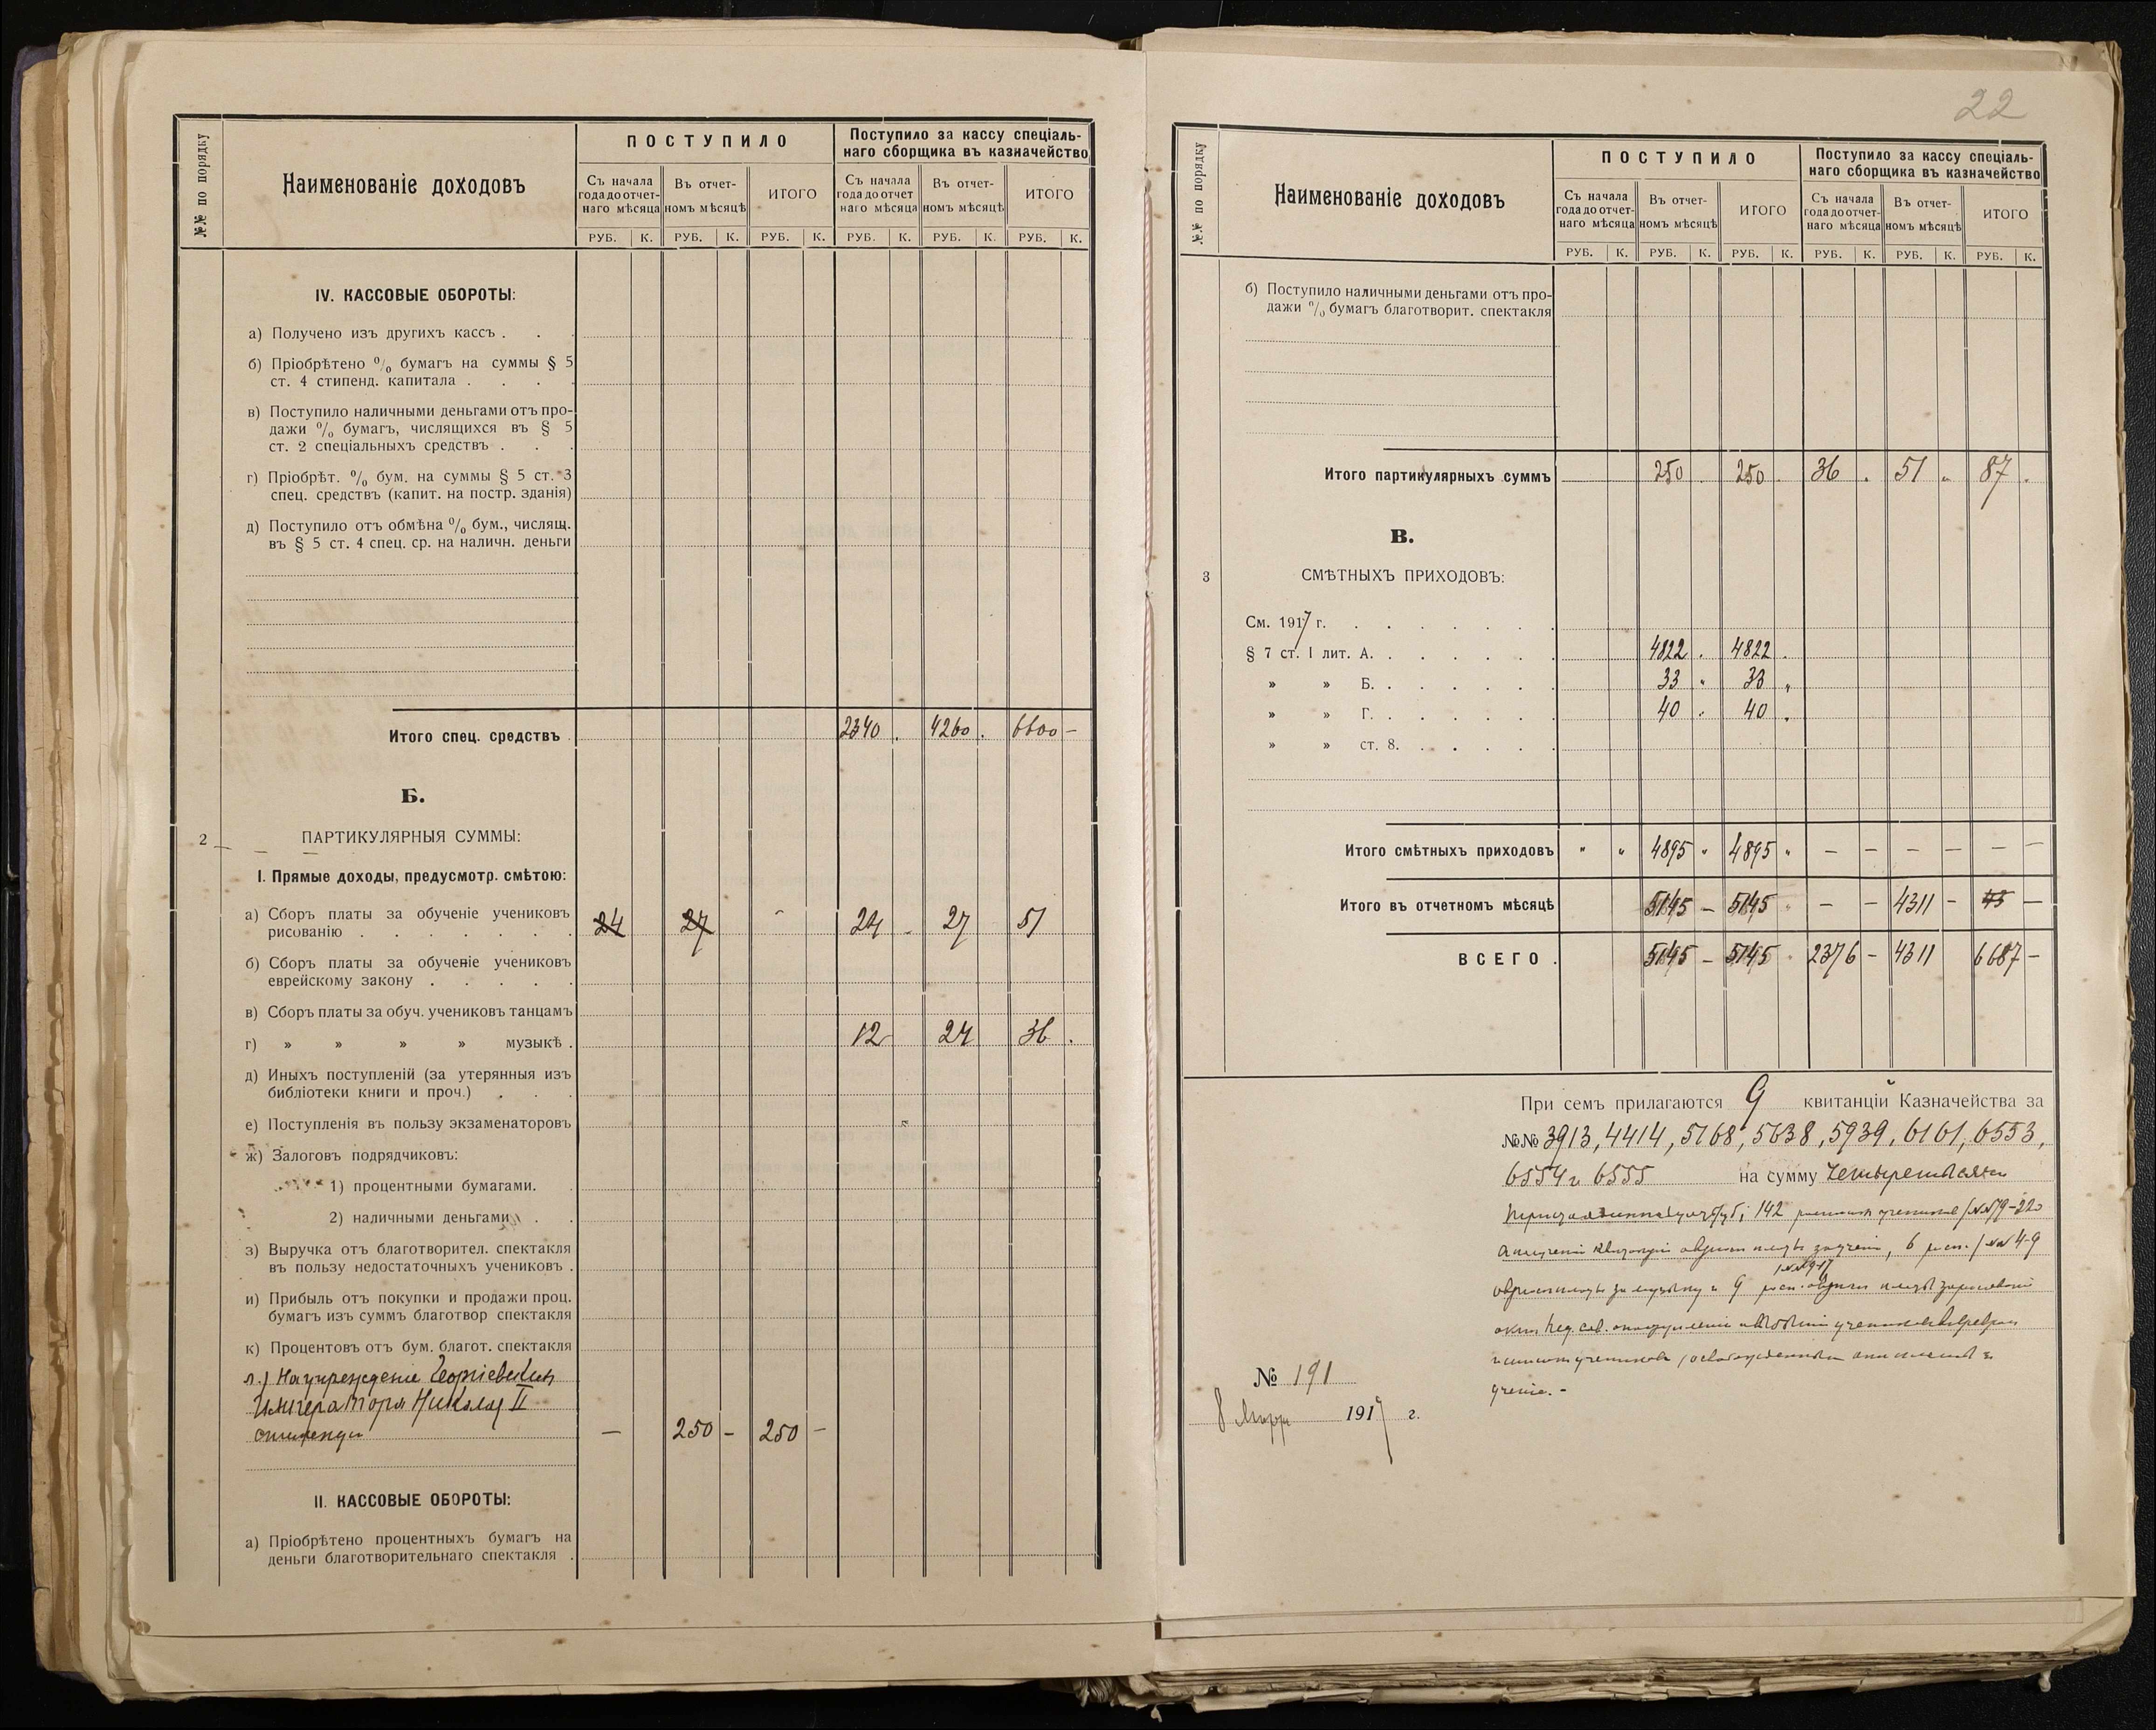 №№ по порядку
Наименованіе доходовъ
ПОСТУПИЛО
Поступило за кассу спеціаль-
наго сборщика въ казначейство
Съ начала
года до отчет-
наго мѣсяца
Въ отчет-
номъ мѣсяцѣ
ИТОГО
Съ начала
года до отчет
наго мѣсяца
Въ отчет-
номъ мѣсяцѣ
ИТОГО
РУБ. К. РУБ. К. РУБ. К. РУБ. К. РУБ. К. РУБ. К.
IV. КАССОВЫЕ ОБОРОТЫ:
а) Получено изъ другихъ кассъ . . .
б) Пріобрѣтено % бумагъ на суммы § 5
ст. 4 стипенд. капитала . . . .
в) Поступило наличными деньгами отъ про-
дажи % бумагъ, числящихся въ § 5
ст. 2 спеціальныхъ средствъ . . .
г) Пріобрѣт. % бум. на суммы § 5 ст. 3
спец. средствъ (капит. на постр. зданія)
д) Поступило отъ обмѣна % бум., числящ.
въ § 5 ст. 4 спец. ср. на наличн. деньги
Итого спец. средствъ . 2340 . 4260 . 6600 —
Б.
2 ПАРТИКУЛЯРНЫЯ СУММЫ:
I. Прямые доходы, предусмотр. смѣтою:
а) Сборъ платы за обученіе учениковъ
рисованію . . . . . . . 24 27 24 . 27 51
б) Сборъ платы за обученіе учениковъ
еврейскому закону . . . . .
в) Сборъ платы за обуч. учениковъ танцамъ
г) » » » » музыкѣ . 12 24 36 .
д) Иныхъ поступленій (за утерянныя изъ
библіотеки книги и проч.) . . .
е) Поступленія въ пользу экзаменаторовъ
ж) Залоговъ подрядчиковъ:
1) процентными бумагами.
2) наличными деньгами . .
з) Выручка отъ благотворител. спектакля
въ пользу недостаточныхъ учениковъ .
и) Прибыль отъ покупки и продажи проц.
бумагъ изъ суммъ благотвор спектакля
к) Процентовъ отъ бум. благот. спектакля
л.) На учрежденіе Георгіевских
Императора Николая II
стипенди — 250 — 250 —
II. КАССОВЫЕ ОБОРОТЫ:
а) Пріобрѣтено процентныхъ бумагъ на
деньги благотворительнаго спектакля .
22
№№ по порядку
Наименованіе доходовъ
ПОСТУПИЛО
Поступило за кассу спеціаль-
наго сборщика въ казначейство
Съ начала
года до отчет-
наго мѣсяца
Въ отчет-
номъ мѣсяцѣ
ИТОГО
Съ начала
года до отчет-
наго мѣсяца
Въ отчет-
номъ мѣсяцѣ
ИТОГО
РУБ. К. РУБ. К. РУБ. К. РУБ. К. РУБ. К. РУБ. К.
б) Поступило наличными деньгами отъ про-
дажи % бумагъ благотворит. спектакля
Итого партикулярныхъ суммъ 250 . 250 . 36 . 51 „ 87 .
В.
3 СМѢТНЫХЪ ПРИХОДОВЪ:
См. 1917 г. . . . . . . .
§ 7 ст. I лит. А. . . . . . . 4822 . 4822 .
» » Б. . . . . . . 33 „ 33 „
» » Г. . . . . . . 40 . 40 .
» » ст. 8. . . . . .
Итого смѣтныхъ приходовъ „ „ 4895 „ 4895 „ — — — — — —
Итого въ отчетномъ мѣсяцѣ 5145 — 5145 „ — — 4311 — —
ВСЕГО . 5145 — 5145 „ 2376 — 4311 6687 —
При семъ прилагаются 9 квитанцій Казначейства за
№№ 3913, 4414, 5168, 5638, 5939, 6161, 6553,
6554 и 6555 на сумму четыре тысячи
142
6
9
№ 191
8 Марта 1917 г.
ученіе. —